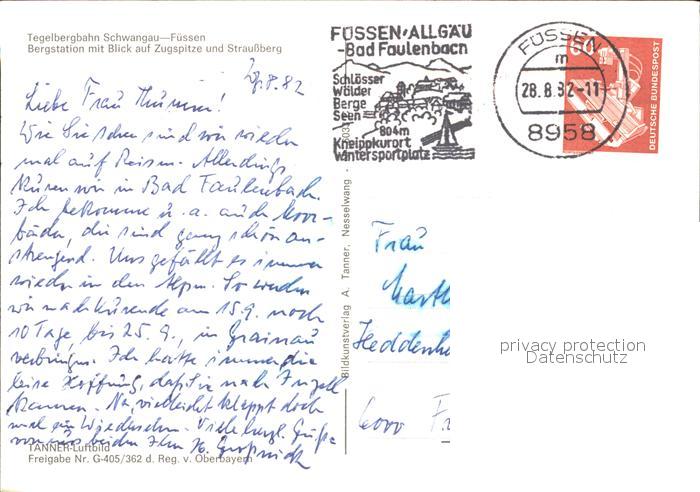 Tegelbergbahn Schwangau—Füssen
Bergstation mit Blick auf Zugspitze und Straußberg
28.8.82
Liebe Frau
Wie Sie sehen sind wir wieder
mal auf Reisen. Allerdings
kuren wir in Bad Faulenbach.
Ich bekomme u. a. auch Moor-
bäder, die sind ganz schön an-
strengend. Uns gefällt es immer
wieder in den Alpen. So werden
wir nach Kurende am 15.9. noch
10 Tage, bis 25.9., in Grainau
verbringen. Ich hatte immer die
leise Hoffnung, daß Sie nach
kommen. Na, vielleicht klappt doch
mal ein Wiedersehen. Viele herzl. Grüße
von uns beiden Ihre H.
TANNER-Luftbild
Freigabe Nr. G-405/362 d. Reg. v. Oberbayern
Bildkunstverlag A. Tanner, Nesselwang
FÜSSEN·ALLGÄU
-Bad Faulenbach
Schlösser
Wälder
Berge
Seen
804m
Kneippkurort
Wintersportplatz
FÜSSEN
m
28.8.82-11
8958
60
DEUTSCHE BUNDESPOST
Frau
Heddenh
6000 Fr
privacy protection
Datenschutz